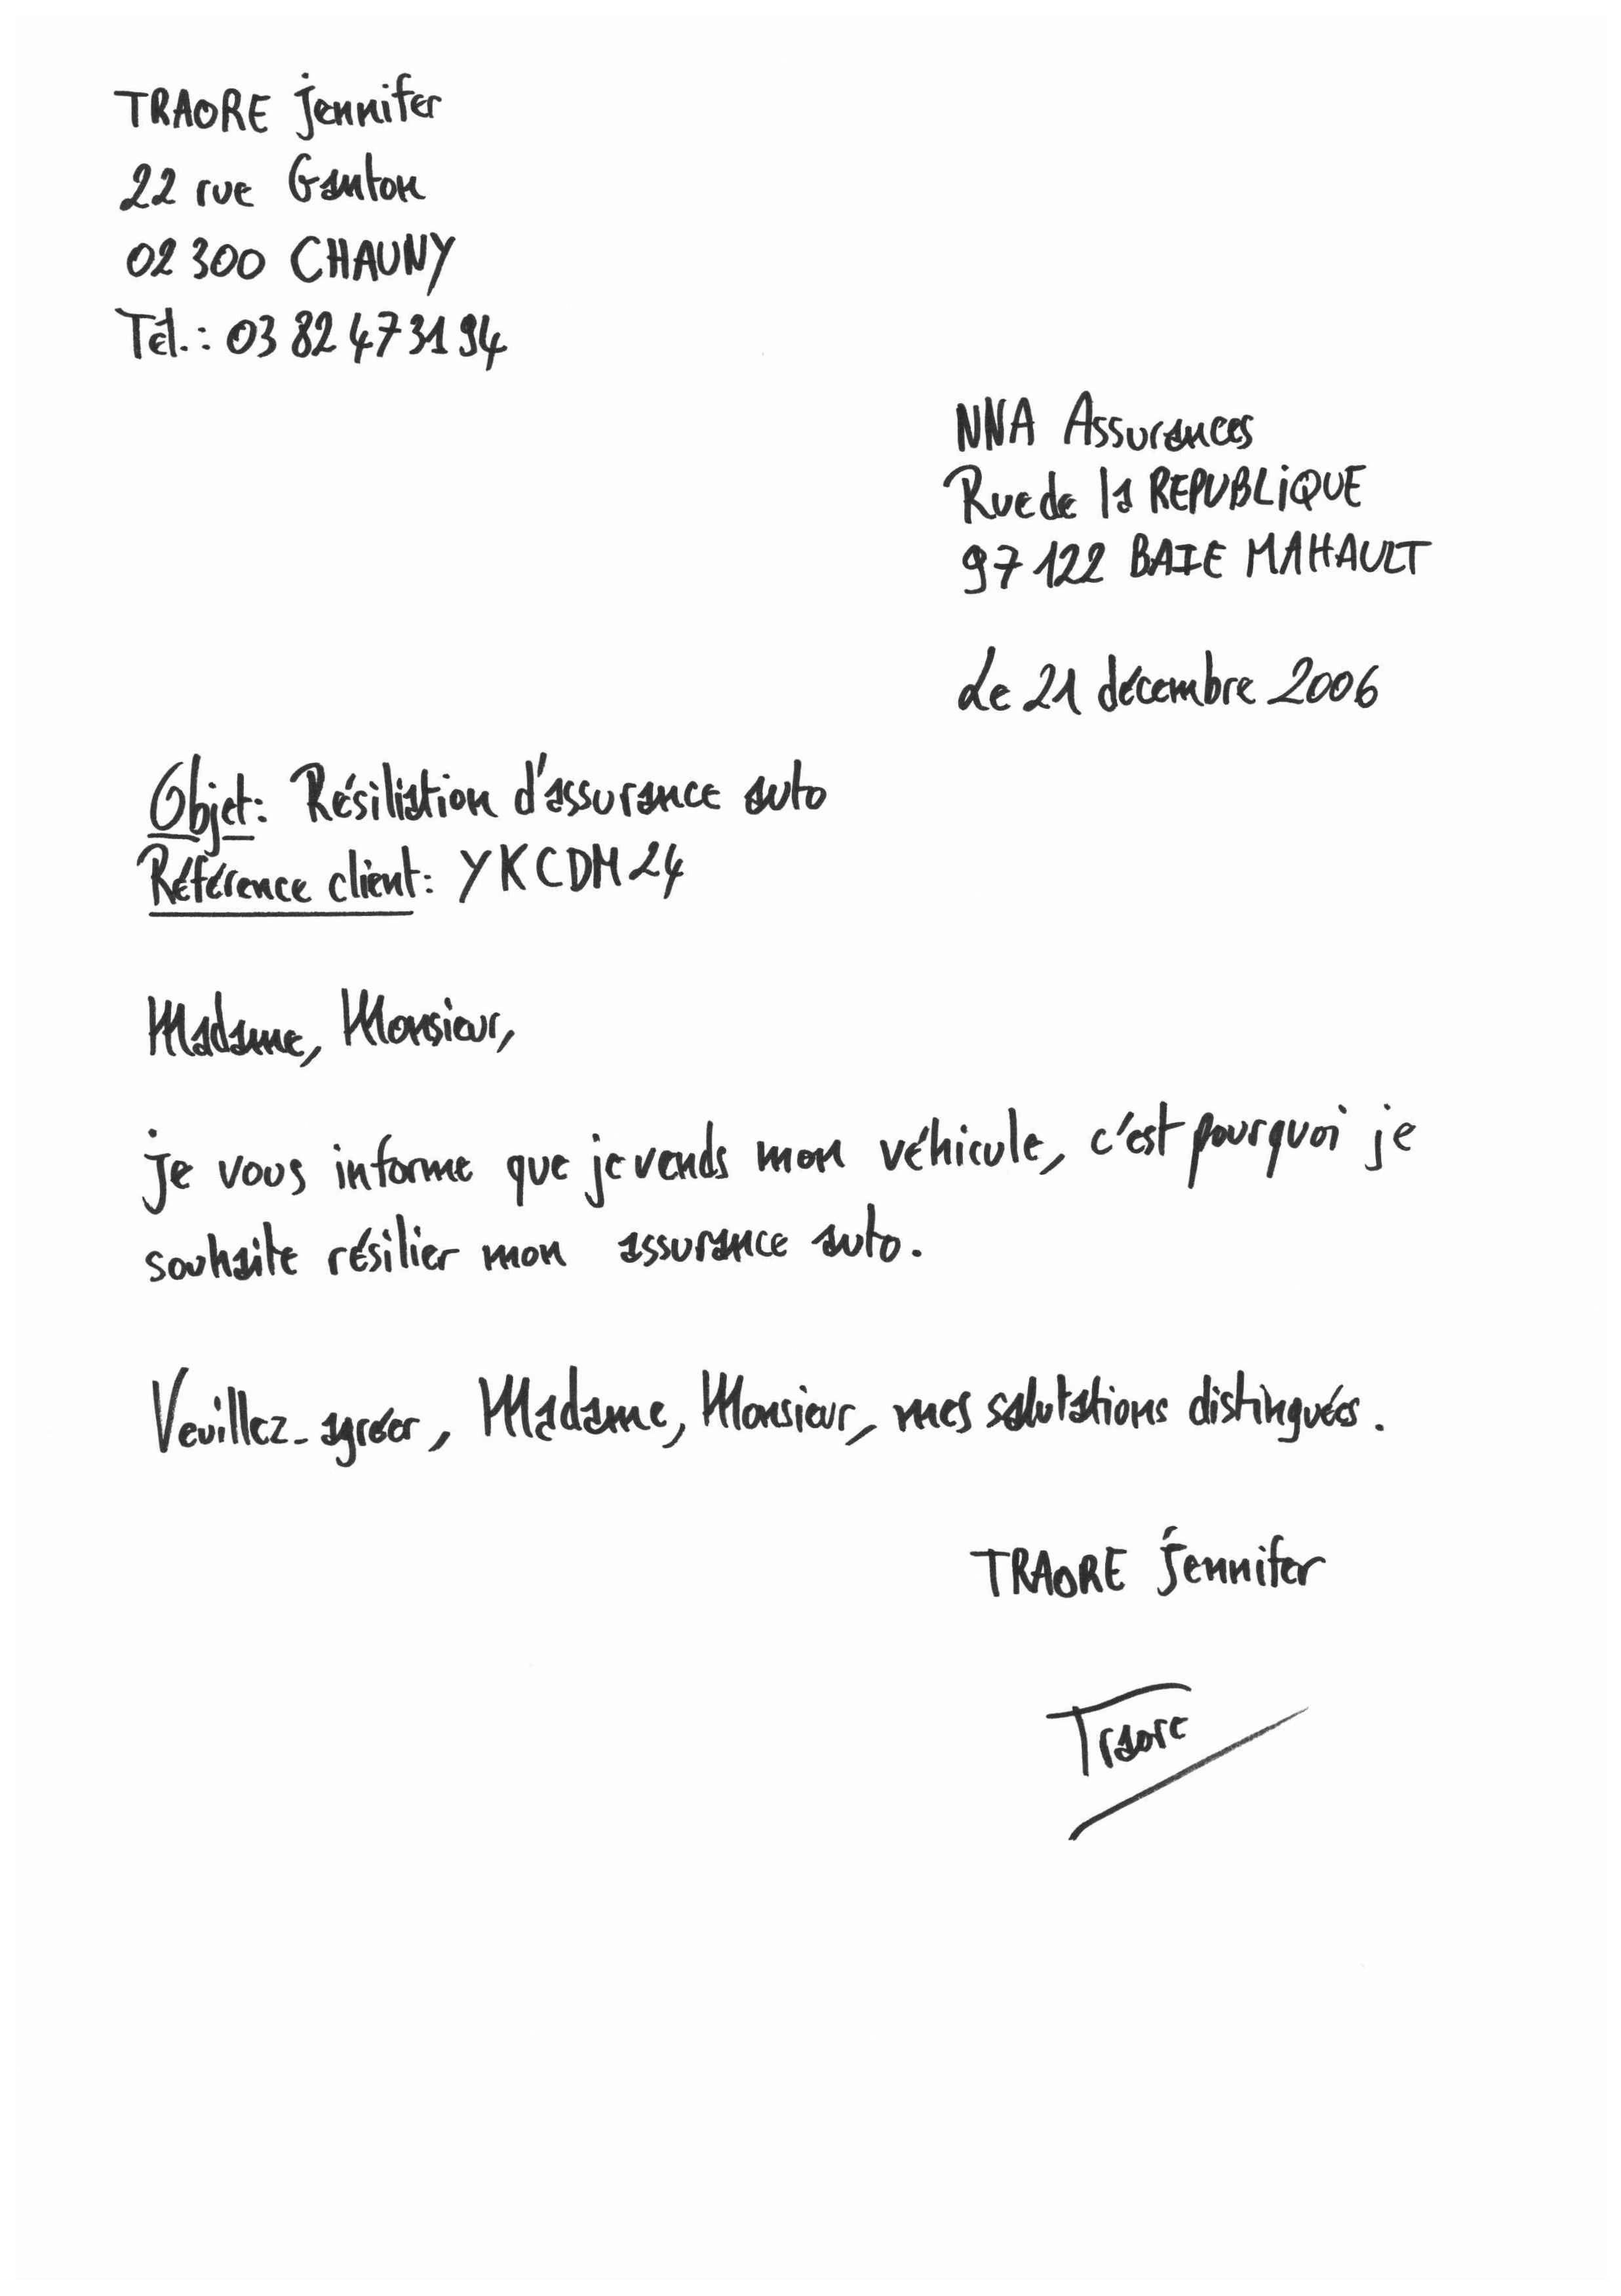 TRAORE Jennifer
22 rue Ganton
02300 CHAUNY
Tél.: 03 82 47 31 94
NNA Assurances
Rue de la REPUBLIQUE
97122 BAIE MAHAULT
Le 21 décembre 2006
Objet: Résiliation d'assurance auto
Référence client: YKCDM24
Madame, Monsieur,
je vous informe que je vends mon véhicule, c'est pourquoi je
souhaite résilier mon assurance auto.
Veuillez-agréer, Madame, Monsieur, mes salutations distinguées.
TRAORE Jennifer
Traore